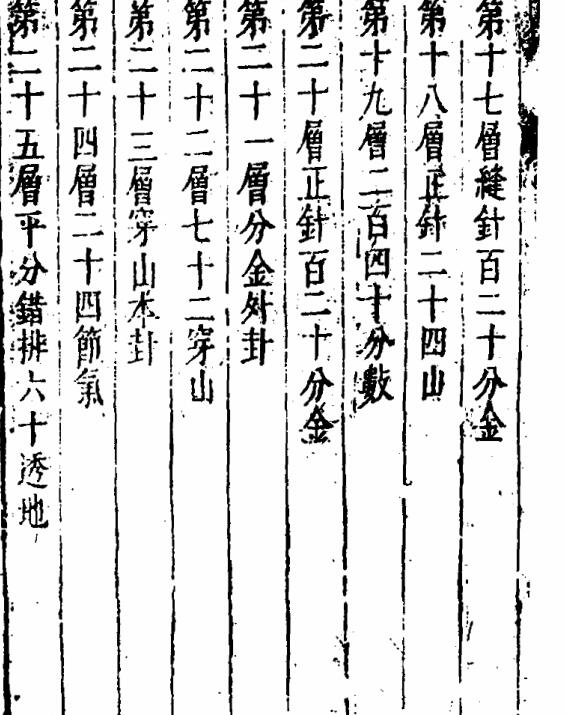 第十七層縫針百二十分金
第十八層正針二十四山
第十九層二百四十分數
第二十層正針百二十分金
第二十一層分金外卦
第二十二層七十二穿山
第二十三層穿山本卦
第二十四層二十四節氣
第二十五層平分錯排六十透地